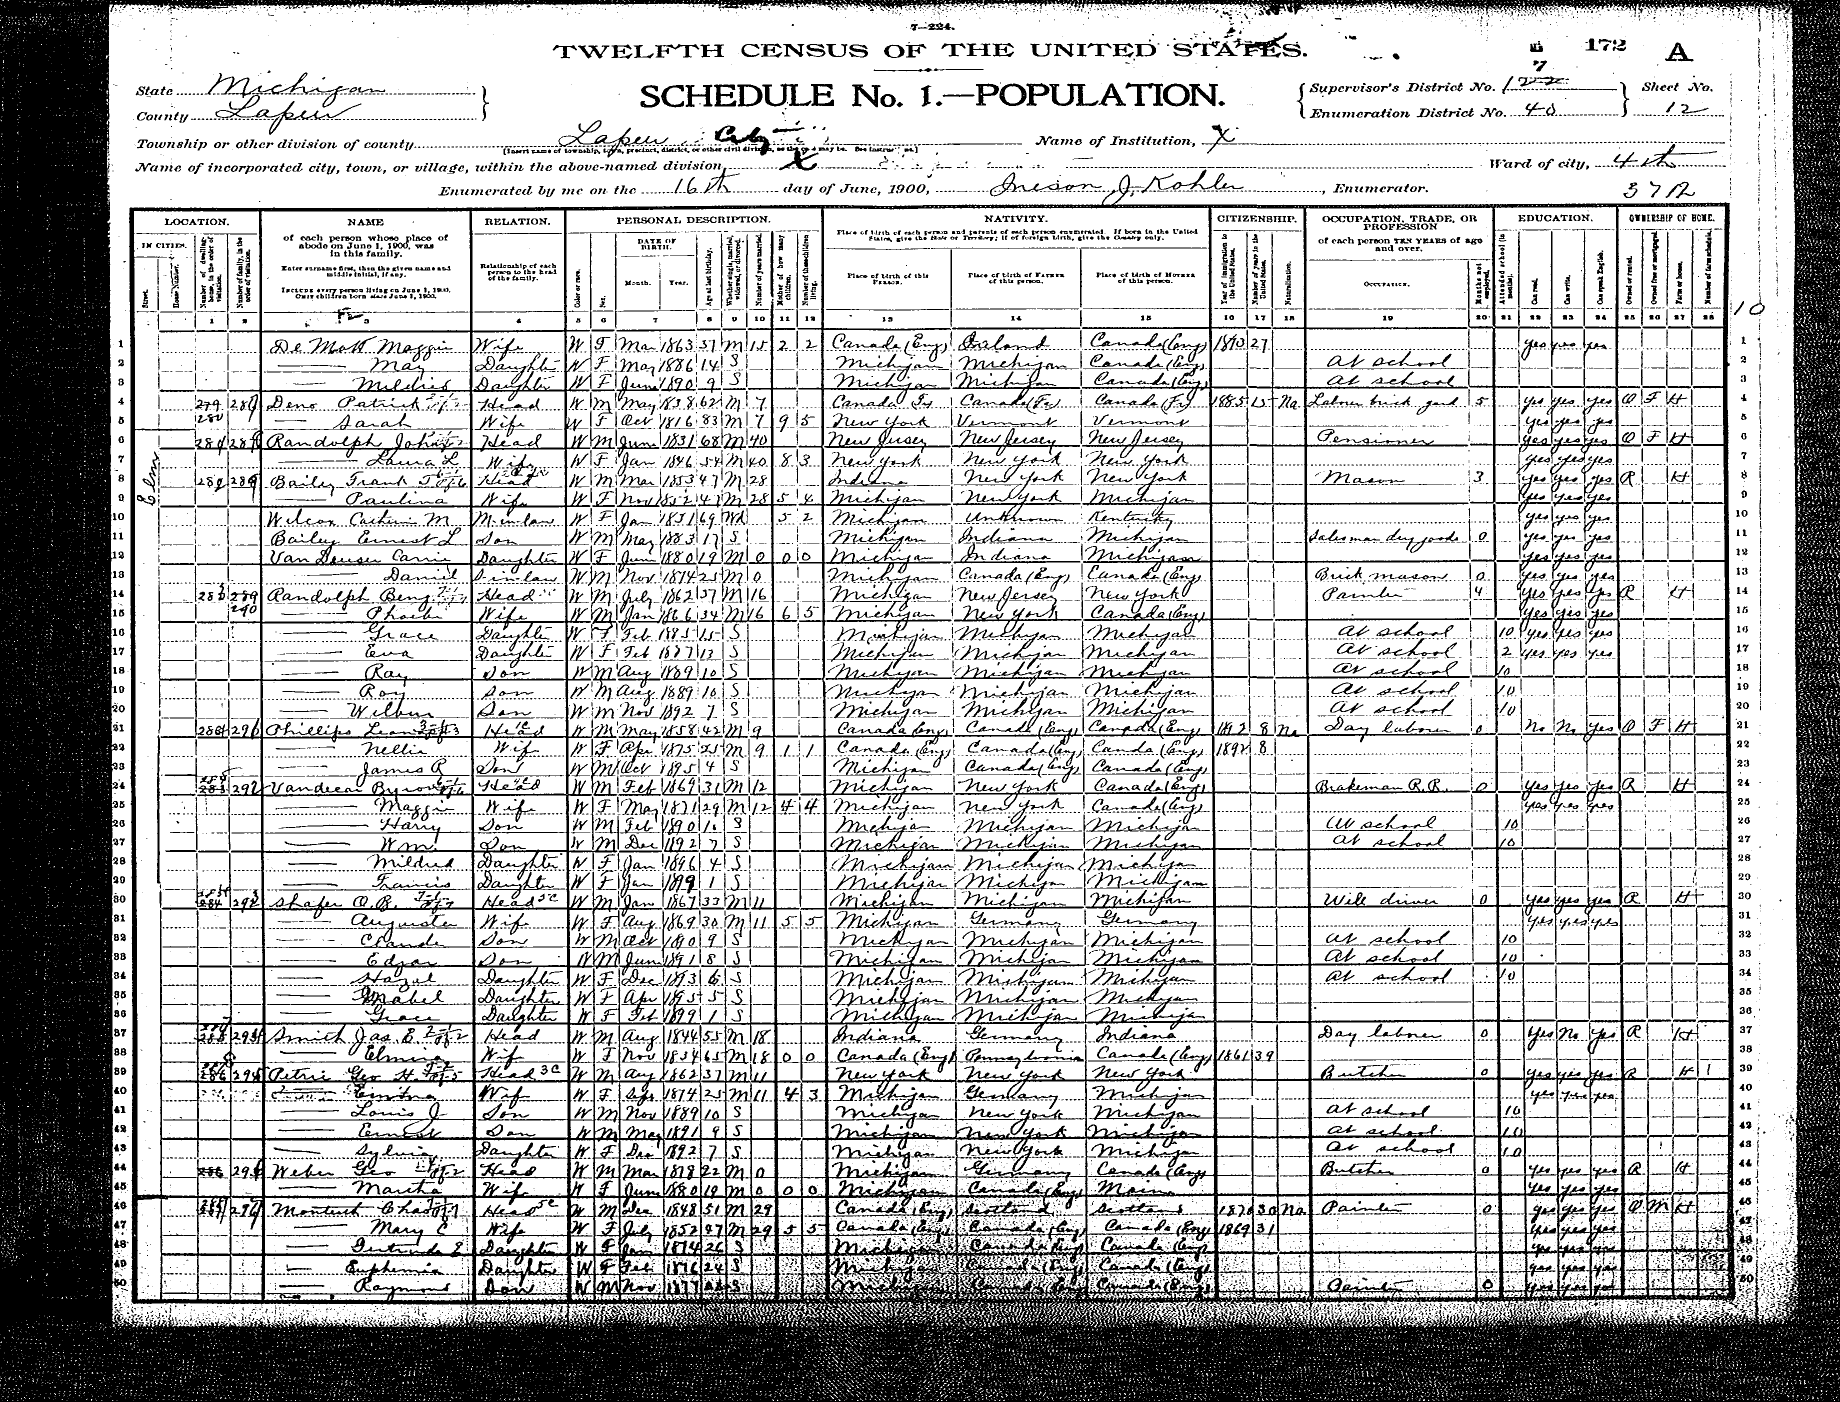 7—224.
TWELFTH CENSUS OF THE UNITED STATES.
172 A
State Michigan
SCHEDULE No. 1.—POPULATION.
Supervisor's District No. 7
Sheet No.
County Lapeer
Enumeration District No. 40
12
Township or other division of county Lapeer City
Name of Institution, X
Name of incorporated city, town, or village, within the above-named division, X
Ward of city, 4th
Enumerated by me on the 16th day of June, 1900, J. Kohler, Enumerator.
LOCATION. NAME RELATION. PERSONAL DESCRIPTION. NATIVITY. CITIZENSHIP. OCCUPATION, TRADE, OR PROFESSION EDUCATION. OWNERSHIP OF HOME.
IN CITIES. of each person whose place of abode on June 1, 1900, was in this family. Relationship of each person to the head of the family. DATE OF BIRTH. of each person TEN YEARS of age and over.
Enter surname first, then the given name and middle initial, if any.
Include every person living on June 1, 1900. Omit children born since June 1, 1900.
Month. Year. Place of birth of this Person. Place of birth of Father of this person. Place of birth of Mother of this person. OCCUPATION.
1 2 3 4 5 6 7 8 9 10 11 12 13 14 15 16 17 18 19 20 21 22 23 24 25 26 27 28
Elm
1 De Mott Maggie Wife W F Mar 1863 37 M 15 2 2 Canada (Eng) Ireland Canada (Eng) 27 yes yes yes 1
2 — May Daughter W F May 1886 14 S Michigan Michigan Canada (Eng) At school 2
3 — Mildred Daughter W F June 1890 9 S Michigan Michigan Canada (Eng) At school 3
4 Deno Patrick Head W M May 1838 62 M 7 Canada Fr Canada (Fr) Canada (Fr) 1885 15 Na Labor brick yard 5 yes yes yes O F H 4
5 — Sarah Wife W F Oct 1816 83 M 7 9 5 New York Vermont Vermont yes yes yes 5
6 Randolph John Head W M June 1831 68 M 40 New Jersey New Jersey New Jersey Pensioner yes yes yes O F H 6
7 — Laura L Wife W F Jan 1846 54 M 40 8 3 New York New York New York yes yes yes 7
8 Bailey Frank Head W M Mar 1853 47 M 28 Indiana New York New York Mason 3 yes yes yes R H 8
9 — Paulina Wife W F Nov 1852 47 M 28 5 4 Michigan New York Michigan yes yes yes 9
10 Wilcox M M in law W F Jan 1831 69 Wd 5 2 Michigan Unknown Kentucky yes yes yes 10
11 Bailey Ernest L Son W M May 1883 17 S Michigan Indiana Michigan Salesman dry goods 0 yes yes yes 11
12 Van Deusen Carrie Daughter W F June 1880 19 M 0 0 0 Michigan Indiana Michigan yes yes yes 12
13 — Daniel S in law W M Nov 1874 25 M 0 Michigan Canada (Eng) Canada (Eng) Brick mason 0 yes yes yes 13
14 Randolph Benj Head W M July 1862 37 M 16 Michigan New Jersey New York Painter 4 yes yes yes R H 14
15 — Phoebe Wife W M Jan 1866 34 M 16 6 5 Michigan New York Canada (Eng) yes yes yes 15
16 — Grace Daughter W F Feb 1885 15 S Michigan Michigan Michigan At school 10 yes yes yes 16
17 — Eva Daughter W F Feb 1887 13 S Michigan Michigan Michigan At school 2 yes yes yes 17
18 — Ray Son W M Aug 1889 10 S Michigan Michigan Michigan At school 10 18
19 — Roy Son W M Aug 1889 10 S Michigan Michigan Michigan At school 10 19
20 — Wilbur Son W M Nov 1892 7 S Michigan Michigan Michigan At school 10 20
21 Phillips Head W M May 1858 42 M 9 Canada (Eng) Canada (Eng) Canada (Eng) 1892 8 Na Day laborer 0 No No yes O F H 21
22 — Nellie Wife W F Apr 1875 25 M 9 1 1 Canada (Eng) Canada (Eng) Canada (Eng) 1892 8 22
23 — James R Son W M Oct 1895 4 S Michigan Canada (Eng) Canada (Eng) 23
24 Vandecar Byron Head W M Feb 1869 31 M 12 Michigan New York Canada (Eng) Brakeman R.R. 0 yes yes yes R H 24
25 — Maggie Wife W F May 1871 29 M 12 4 4 Michigan New York Canada (Eng) yes yes yes 25
26 — Harry Son W M Feb 1890 10 S Michigan Michigan Michigan At school 10 26
27 — Wm. Son W M Dec 1892 7 S Michigan Michigan Michigan At school 10 27
28 — Mildred Daughter W F Jan 1896 4 S Michigan Michigan Michigan 28
29 — Francis Daughter W F Jan 1899 1 S Michigan Michigan Michigan 29
30 Shafer O.B. Head W M Jan 1867 33 M 11 Michigan Michigan Michigan Well driver 0 yes yes yes R H 30
31 — Augusta Wife W F Aug 1869 30 M 11 5 5 Michigan Germany Germany yes yes yes 31
32 — Claude Son W M Oct 1890 9 S Michigan Michigan Michigan At school 10 32
33 — Edgar Son W M June 1891 8 S Michigan Michigan Michigan At school 10 33
34 — Hazel Daughter W F Dec 1893 6 S Michigan Michigan Michigan At school 10 34
35 — Mabel Daughter W F Apr 1895 5 S Michigan Michigan Michigan 35
36 — Grace Daughter W F Feb 1899 1 S Michigan Michigan Michigan 36
37 Smith Jas. E. Head W M Aug 1844 55 M 18 Indiana Germany Indiana Day laborer 0 yes No yes R H 37
38 — Elmira Wife W F Nov 1834 65 M 18 0 0 Canada (Eng) Pennsylvania Canada (Eng) 1861 39 38
39 Petrie Geo H. Head W M Aug 1862 37 M 11 New York New York New York Butcher 0 yes yes yes R H 39
40 — Emma Wife W F Sept 1874 25 M 11 4 3 Michigan Germany Michigan yes yes yes 40
41 — Louis J Son W M Nov 1889 10 S Michigan New York Michigan At school 10 41
42 — Ernest Son W M May 1891 9 S Michigan New York Michigan At school 10 42
43 — Sylvia Daughter W F Dec 1892 7 S Michigan New York Michigan At school 10 43
44 Weber Geo Head W M Mar 1878 22 M 0 Michigan Germany Canada (Eng) Butcher 0 yes yes yes R H 44
45 — Martha Wife W F June 1880 19 M 0 0 0 Michigan Canada (Eng) Maine yes yes yes 45
46 Monteith Chas Head W M Dec 1848 51 M 29 Canada (Eng) Scotland Scotland 1870 30 Na Painter 0 yes yes yes O M H 46
47 — Mary E Wife W F July 1852 47 M 29 5 5 Canada (Eng) Canada (Eng) Canada (Eng) 1869 31 yes yes yes 47
48 — Gertrude E Daughter W F Jan 1874 26 S Michigan Canada (Eng) Canada (Eng) yes yes yes 48
49 — Euphemia Daughter W F Feb 1876 24 S Michigan Canada (Eng) Canada (Eng) yes yes yes 49
50 — Raymond Son W M Nov 1877 22 S Michigan Canada (Eng) Canada (Eng) Painter 0 yes yes yes 50